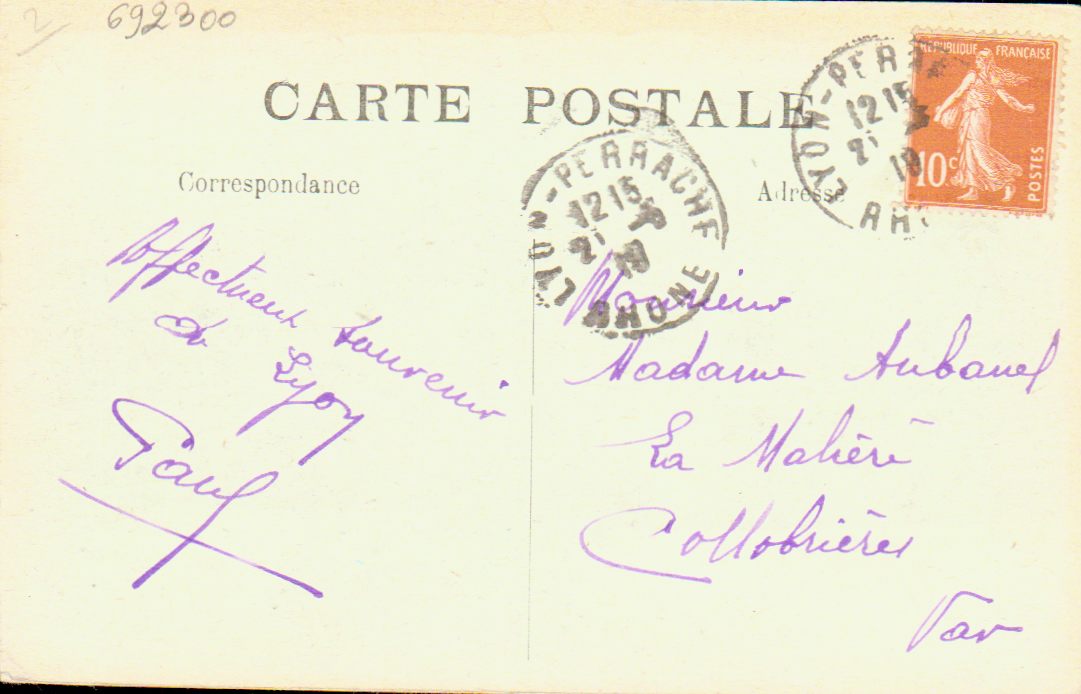 692300
CARTE POSTALE
Correspondance
Adresse
RÉPUBLIQUE FRANÇAISE
10c
POSTES
LYON-PERRACHE
12 15
RHONE
LYON-PERRA
12 15
RH
Affectueux souvenir
de Lyon
Paul
Monsieur
Madame Aubanel
La Malière
Collobrières
Var